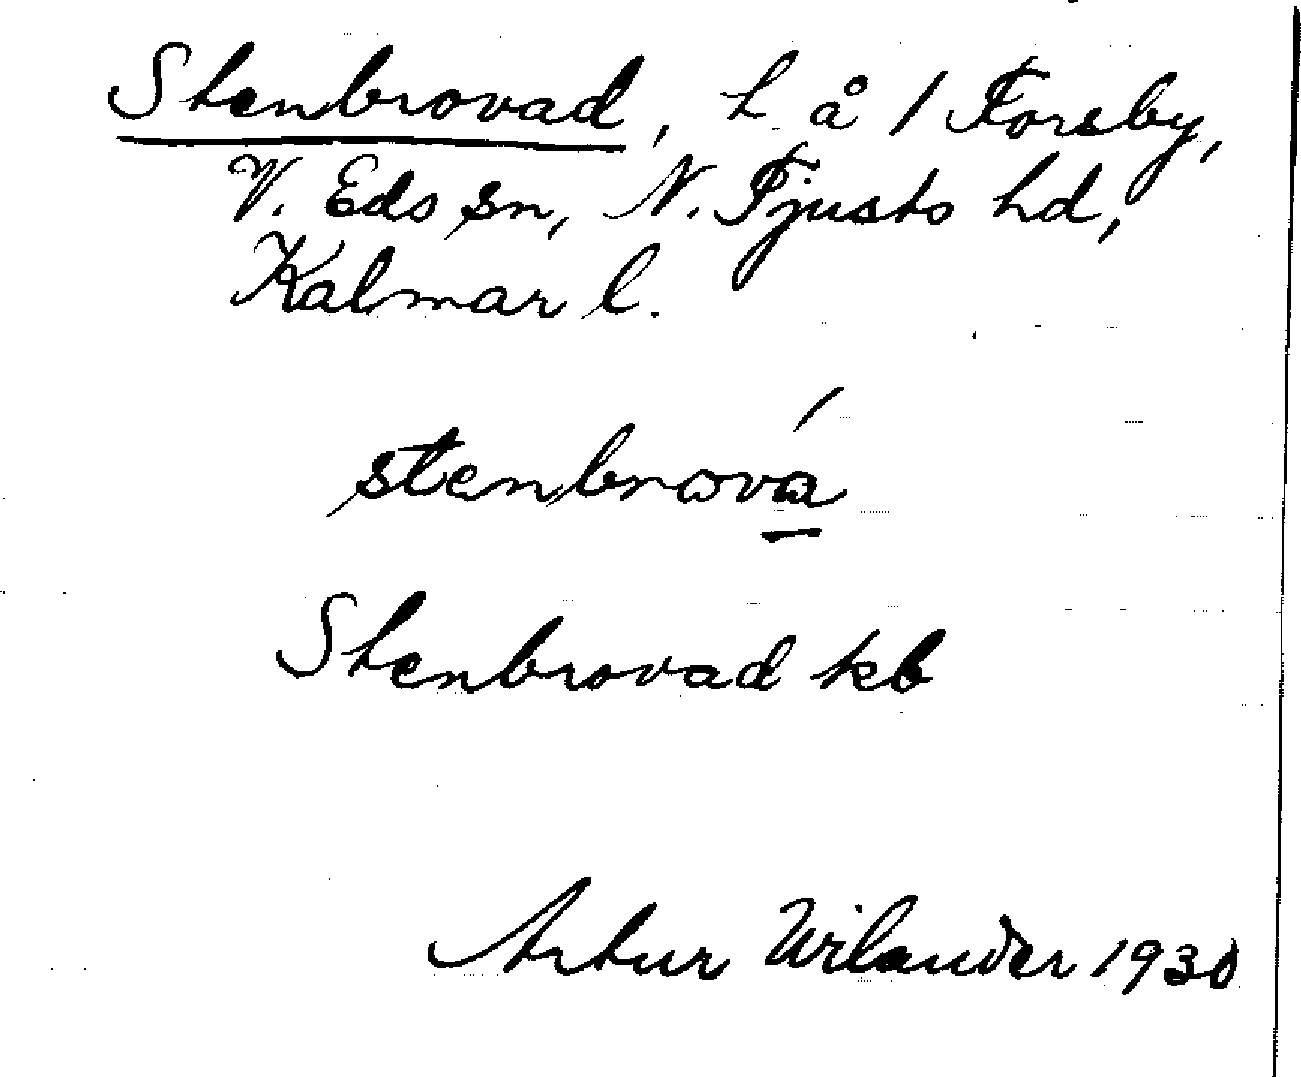 Stenbrovad, t å 1 Forsby,
V. Eds sn, N. Tjusts hd,
Kalmar l.
stenbrová
Stenbrovad kb
Artur Wilander 1930